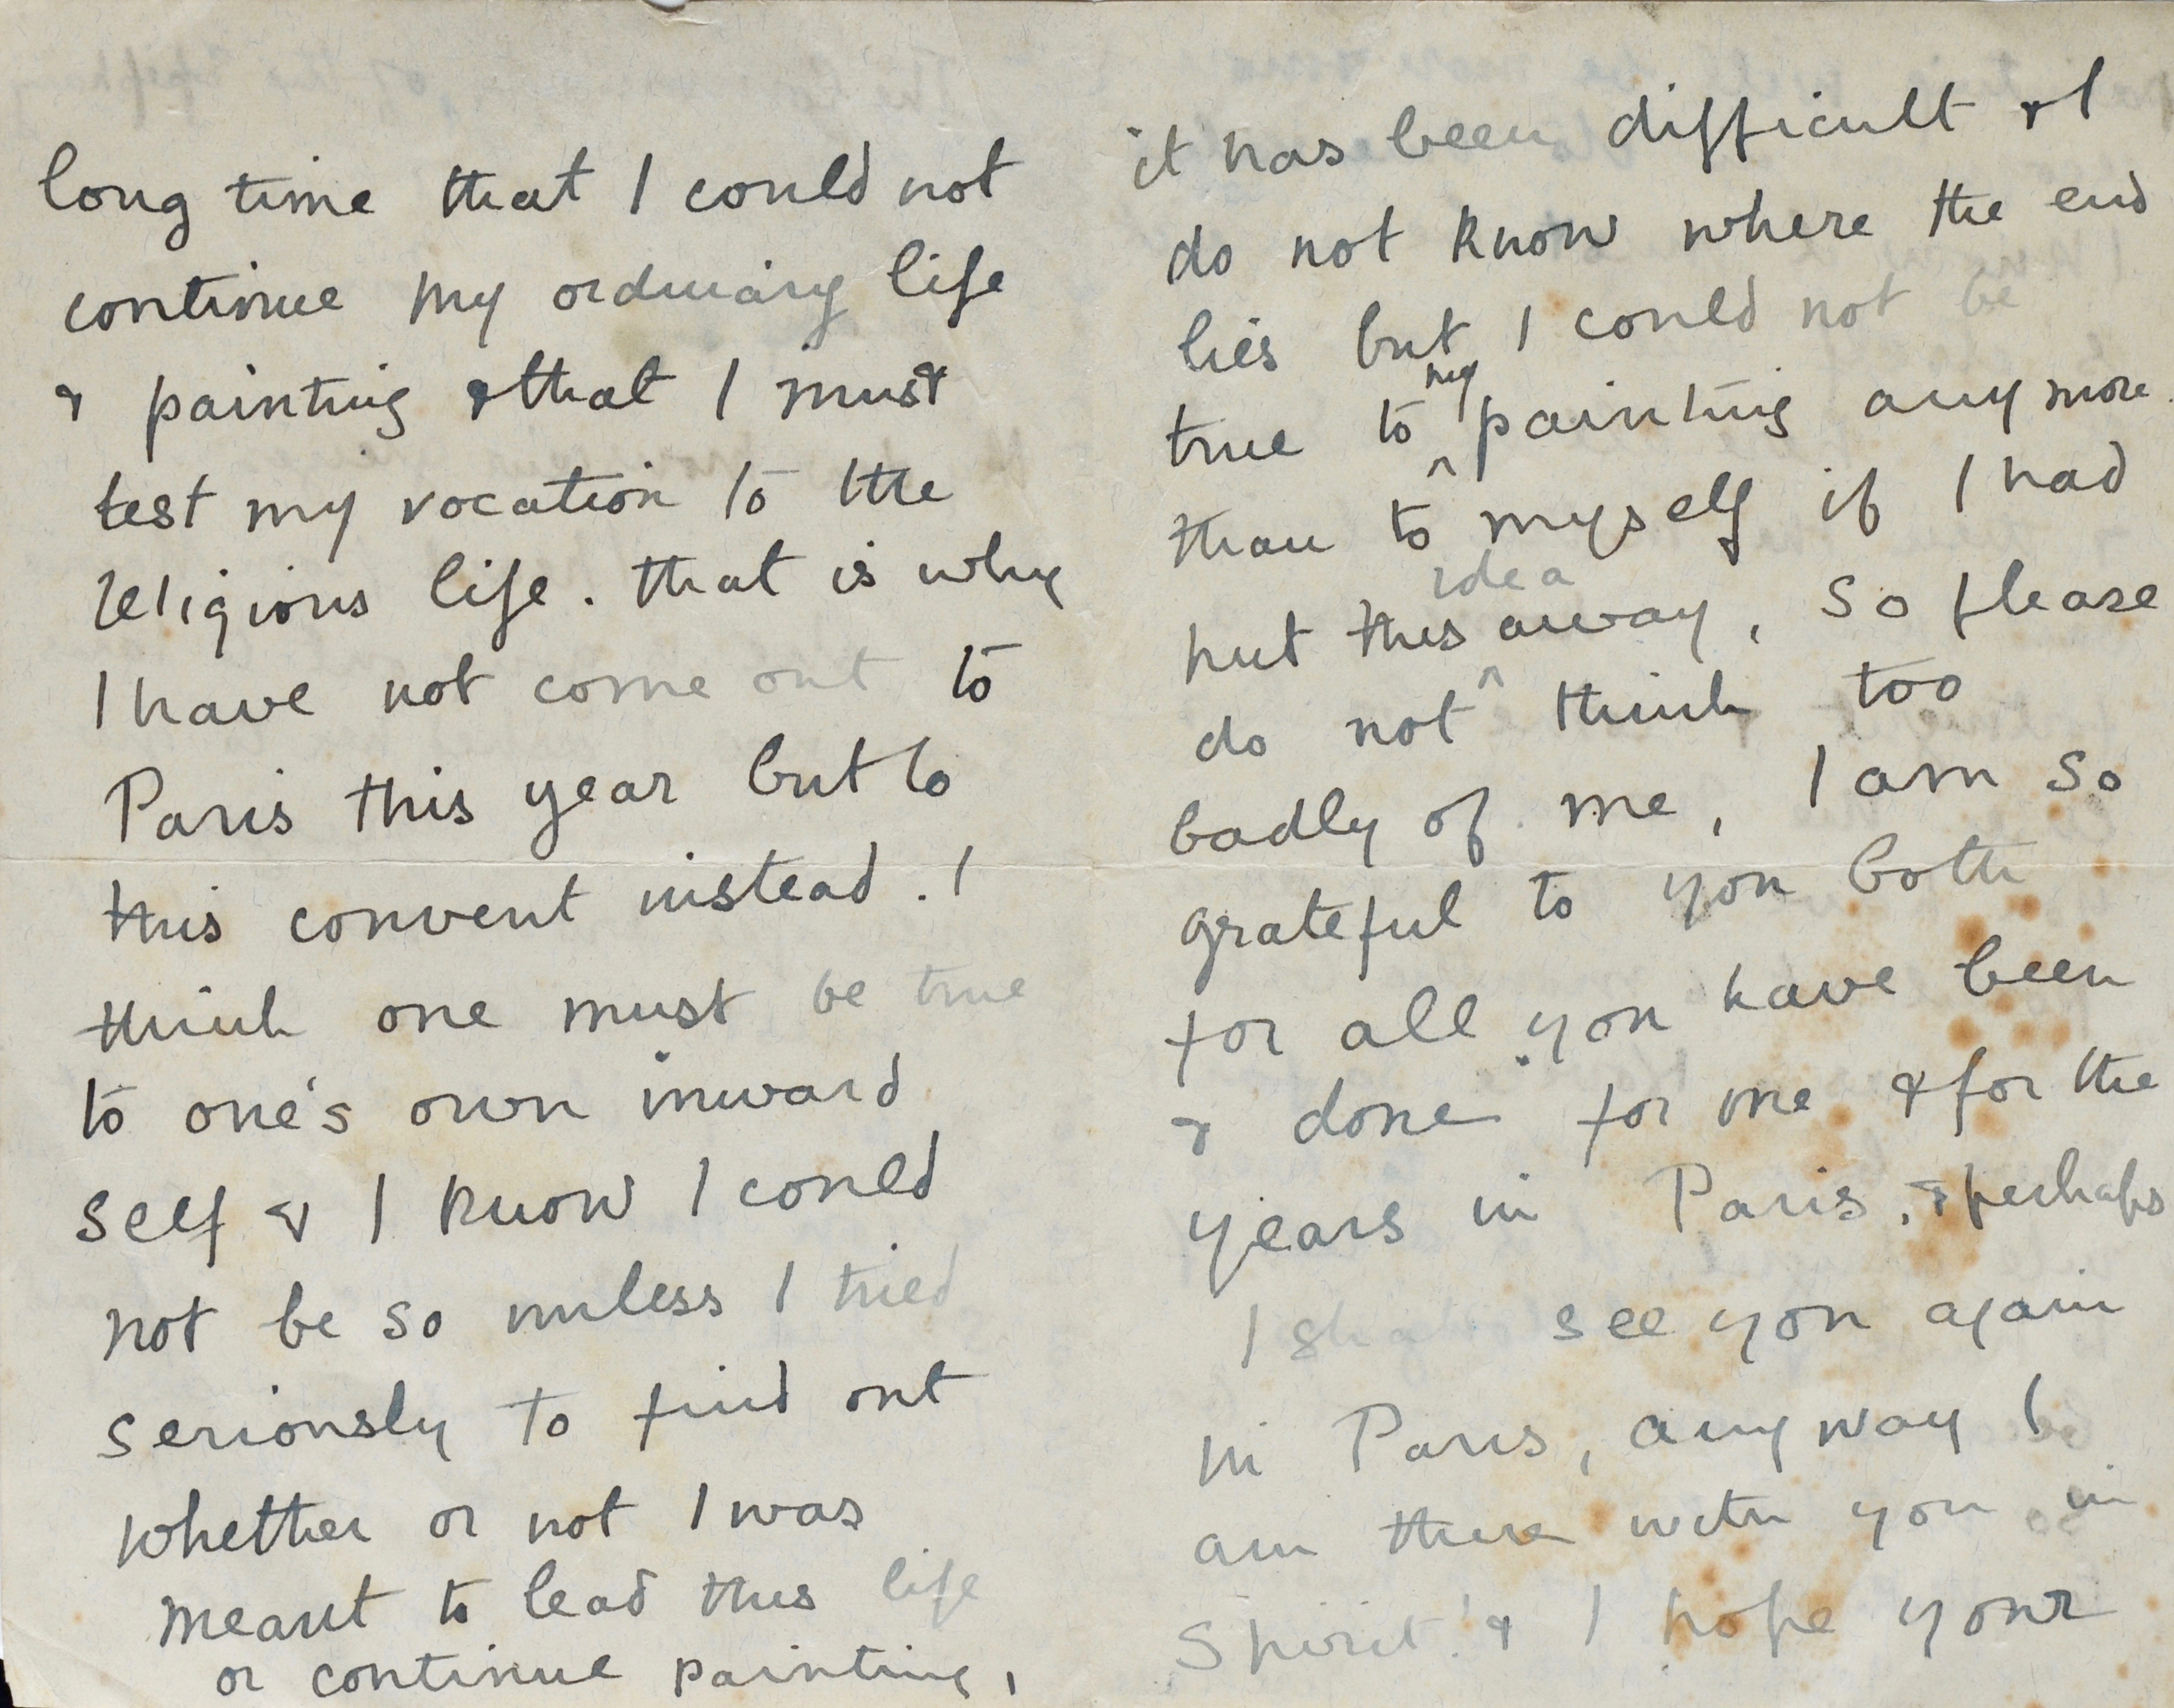 long time that I could not
continue my ordinary life
& painting & that I must
test my vocation to the
religious life. that is why
I have not come out to
Paris this year but to
this convent instead. I
think one must be true
to one's own inward
self & I know I could
not be so unless I tried
seriously to find out
whether or not I was
meant to lead this life
or continue painting,
it has been difficult & I
do not know where the end
lies but I could not be
my
true to ^ painting any more
than to myself if I had
idea
put this ^ away, so please
do not think too
badly of me, I am so
grateful to you both
for all you have been
& done for me & for the
years in Paris, & perhaps
I shall see you again
in Paris, anyway I
am there with you in
spirit! & I hope your